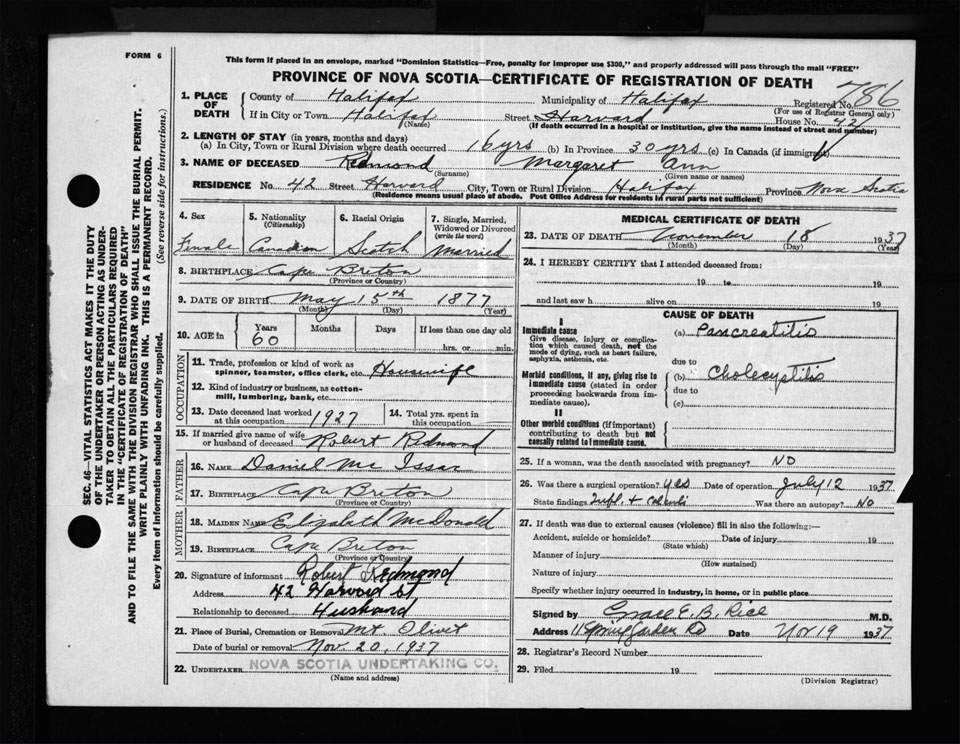 FORM 6
This form if placed in an envelope, marked "Dominion Statistics—Free, penalty for improper use $300," and properly addressed will pass through the mail "FREE"
PROVINCE OF NOVA SCOTIA—CERTIFICATE OF REGISTRATION OF DEATH
1. PLACE OF DEATH County of Halifax Municipality of Halifax Registered No. 786
(For use of Registrar General only)
If in City or Town Halifax (Name) Street Harvard House No. 42
(If death occurred in a hospital or institution, give the name instead of street and number)
2. LENGTH OF STAY (in years, months and days)
(a) In City, Town or Rural Division where death occurred 16 yrs (b) In Province 30 yrs (c) In Canada (if immigrant)
3. NAME OF DECEASED Redmond Margaret Ann
(Surname) (Given name or names)
RESIDENCE No. 42 Street Harvard City, Town or Rural Division Halifax Province Nova Scotia
(Residence means usual place of abode. Post Office Address for residents in rural parts not sufficient)
4. Sex 5. Nationality (Citizenship) 6. Racial Origin 7. Single, Married, Widowed or Divorced (write the word)
Female Canadian Scotch Married
8. BIRTHPLACE Cape Breton
(Province or Country)
9. DATE OF BIRTH May 15th 1877
(Month) (Day) (Year)
10. AGE in Years Months Days If less than one day old
60 hrs. or min.
OCCUPATION
11. Trade, profession or kind of work as spinner, teamster, office clerk, etc. Housewife
12. Kind of industry or business, as cotton-mill, lumbering, bank, etc.
13. Date deceased last worked at this occupation 1927 14. Total yrs. spent in this occupation
15. If married give name of wife or husband of deceased Robert Redmond
FATHER
16. NAME Daniel Mc Issac
17. BIRTHPLACE Cape Breton
(Province or Country)
MOTHER
18. MAIDEN NAME Elizabeth McDonald
19. BIRTHPLACE Cape Breton
(Province or Country)
20. Signature of informant Robert Redmond
Address 42 Harvard St
Relationship to deceased Husband
21. Place of Burial, Cremation or Removal Mt. Olivet
Date of burial or removal Nov. 20, 1937
22. UNDERTAKER NOVA SCOTIA UNDERTAKING CO.
(Name and address)
MEDICAL CERTIFICATE OF DEATH
23. DATE OF DEATH November 18 1937
(Month) (Day) (Year)
24. I HEREBY CERTIFY that I attended deceased from
19 to 19
and last saw h alive on 19
CAUSE OF DEATH
I
Immediate cause (a) Pancreatitis
Give disease, injury or complication which caused death, not the mode of dying, such as heart failure, asphyxia, asthenia, etc.
due to
Morbid conditions, if any, giving rise to immediate cause (stated in order proceeding backwards from immediate cause). (b) Cholecystitis
due to
(c)
II
Other morbid conditions (if important) contributing to death but not causally related to immediate cause.
25. If a woman, was the death associated with pregnancy? NO
26. Was there a surgical operation? yes Date of operation July 12 1937
State findings Was there an autopsy? NO
27. If death was due to external causes (violence) fill in also the following:—
Accident, suicide or homicide? Date of injury 19
(State which)
Manner of injury
(How sustained)
Nature of injury
Specify whether injury occurred in industry, in home, or in public place
Signed by Grace E. B. Rice M.D.
Address 11 Spring Garden Rd Date Nov 19 1937
28. Registrar's Record Number
29. Filed 19
(Division Registrar)
SEC. 46—VITAL STATISTICS ACT MAKES IT THE DUTY
OF THE UNDERTAKER OR PERSON ACTING AS UNDER-
TAKER TO OBTAIN ALL THE PARTICULARS REQUIRED
IN THE "CERTIFICATE OF REGISTRATION OF DEATH"
AND TO FILE THE SAME WITH THE DIVISION REGISTRAR WHO SHALL ISSUE THE BURIAL PERMIT.
WRITE PLAINLY WITH UNFADING INK. THIS IS A PERMANENT RECORD.
Every item of information should be carefully supplied. (See reverse side for instructions.)